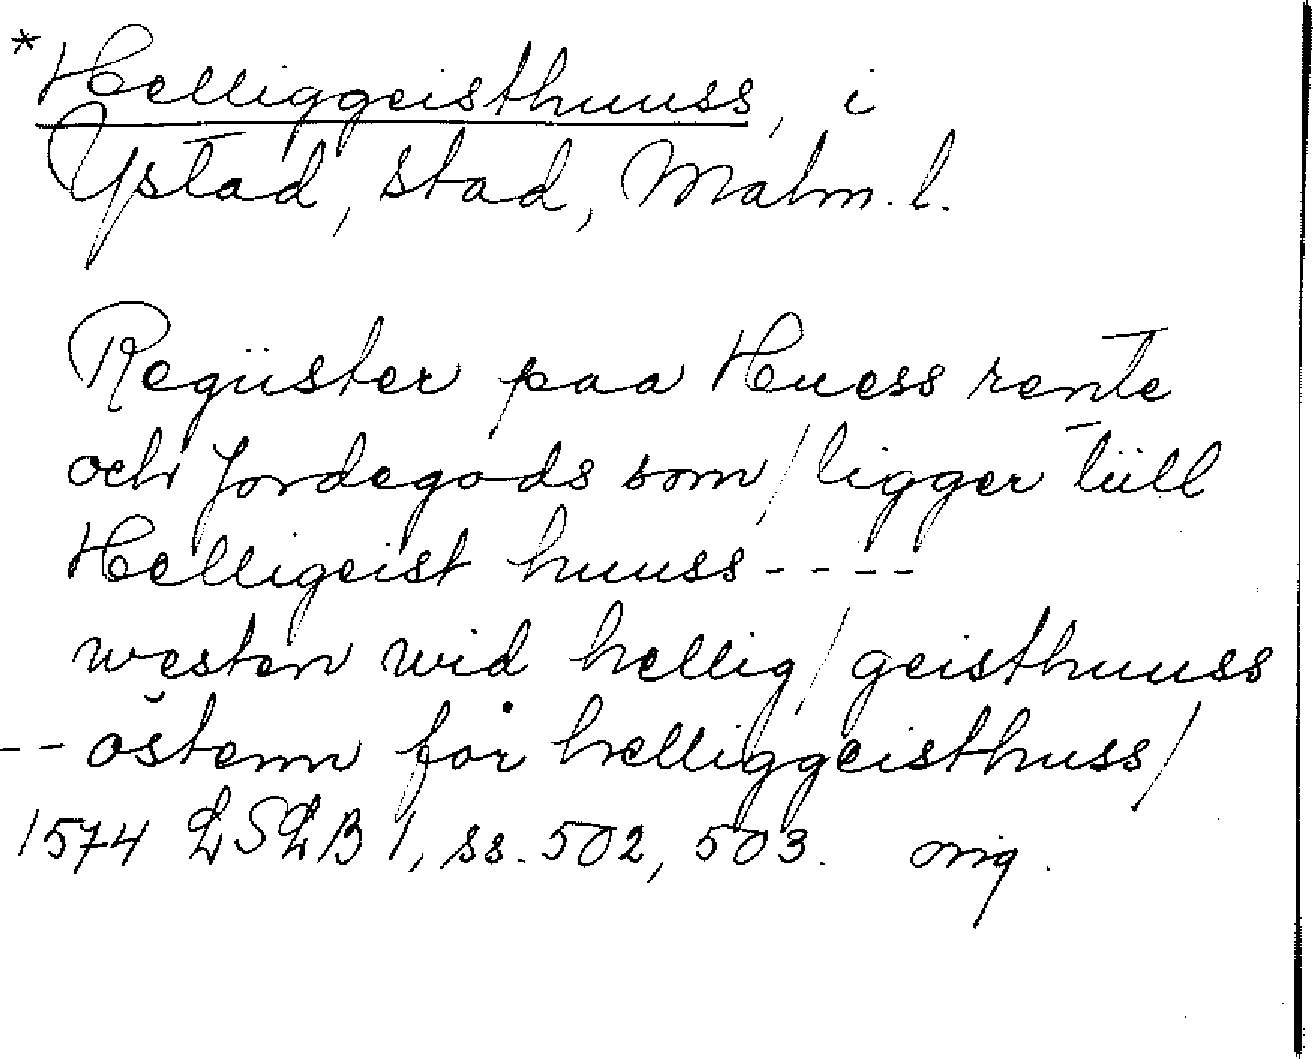 *Helliggeisthuuss, i
Ystad, stad, Malm. l.
Regiister paa Huess rente
och Jordegods som / ligger tiill
Helligeist huuss - - - -
westen wid hellig / geisthuuss
- - östenn for helliggeisthuss /
1574 LSLB 1, ss. 502, 503. orig.